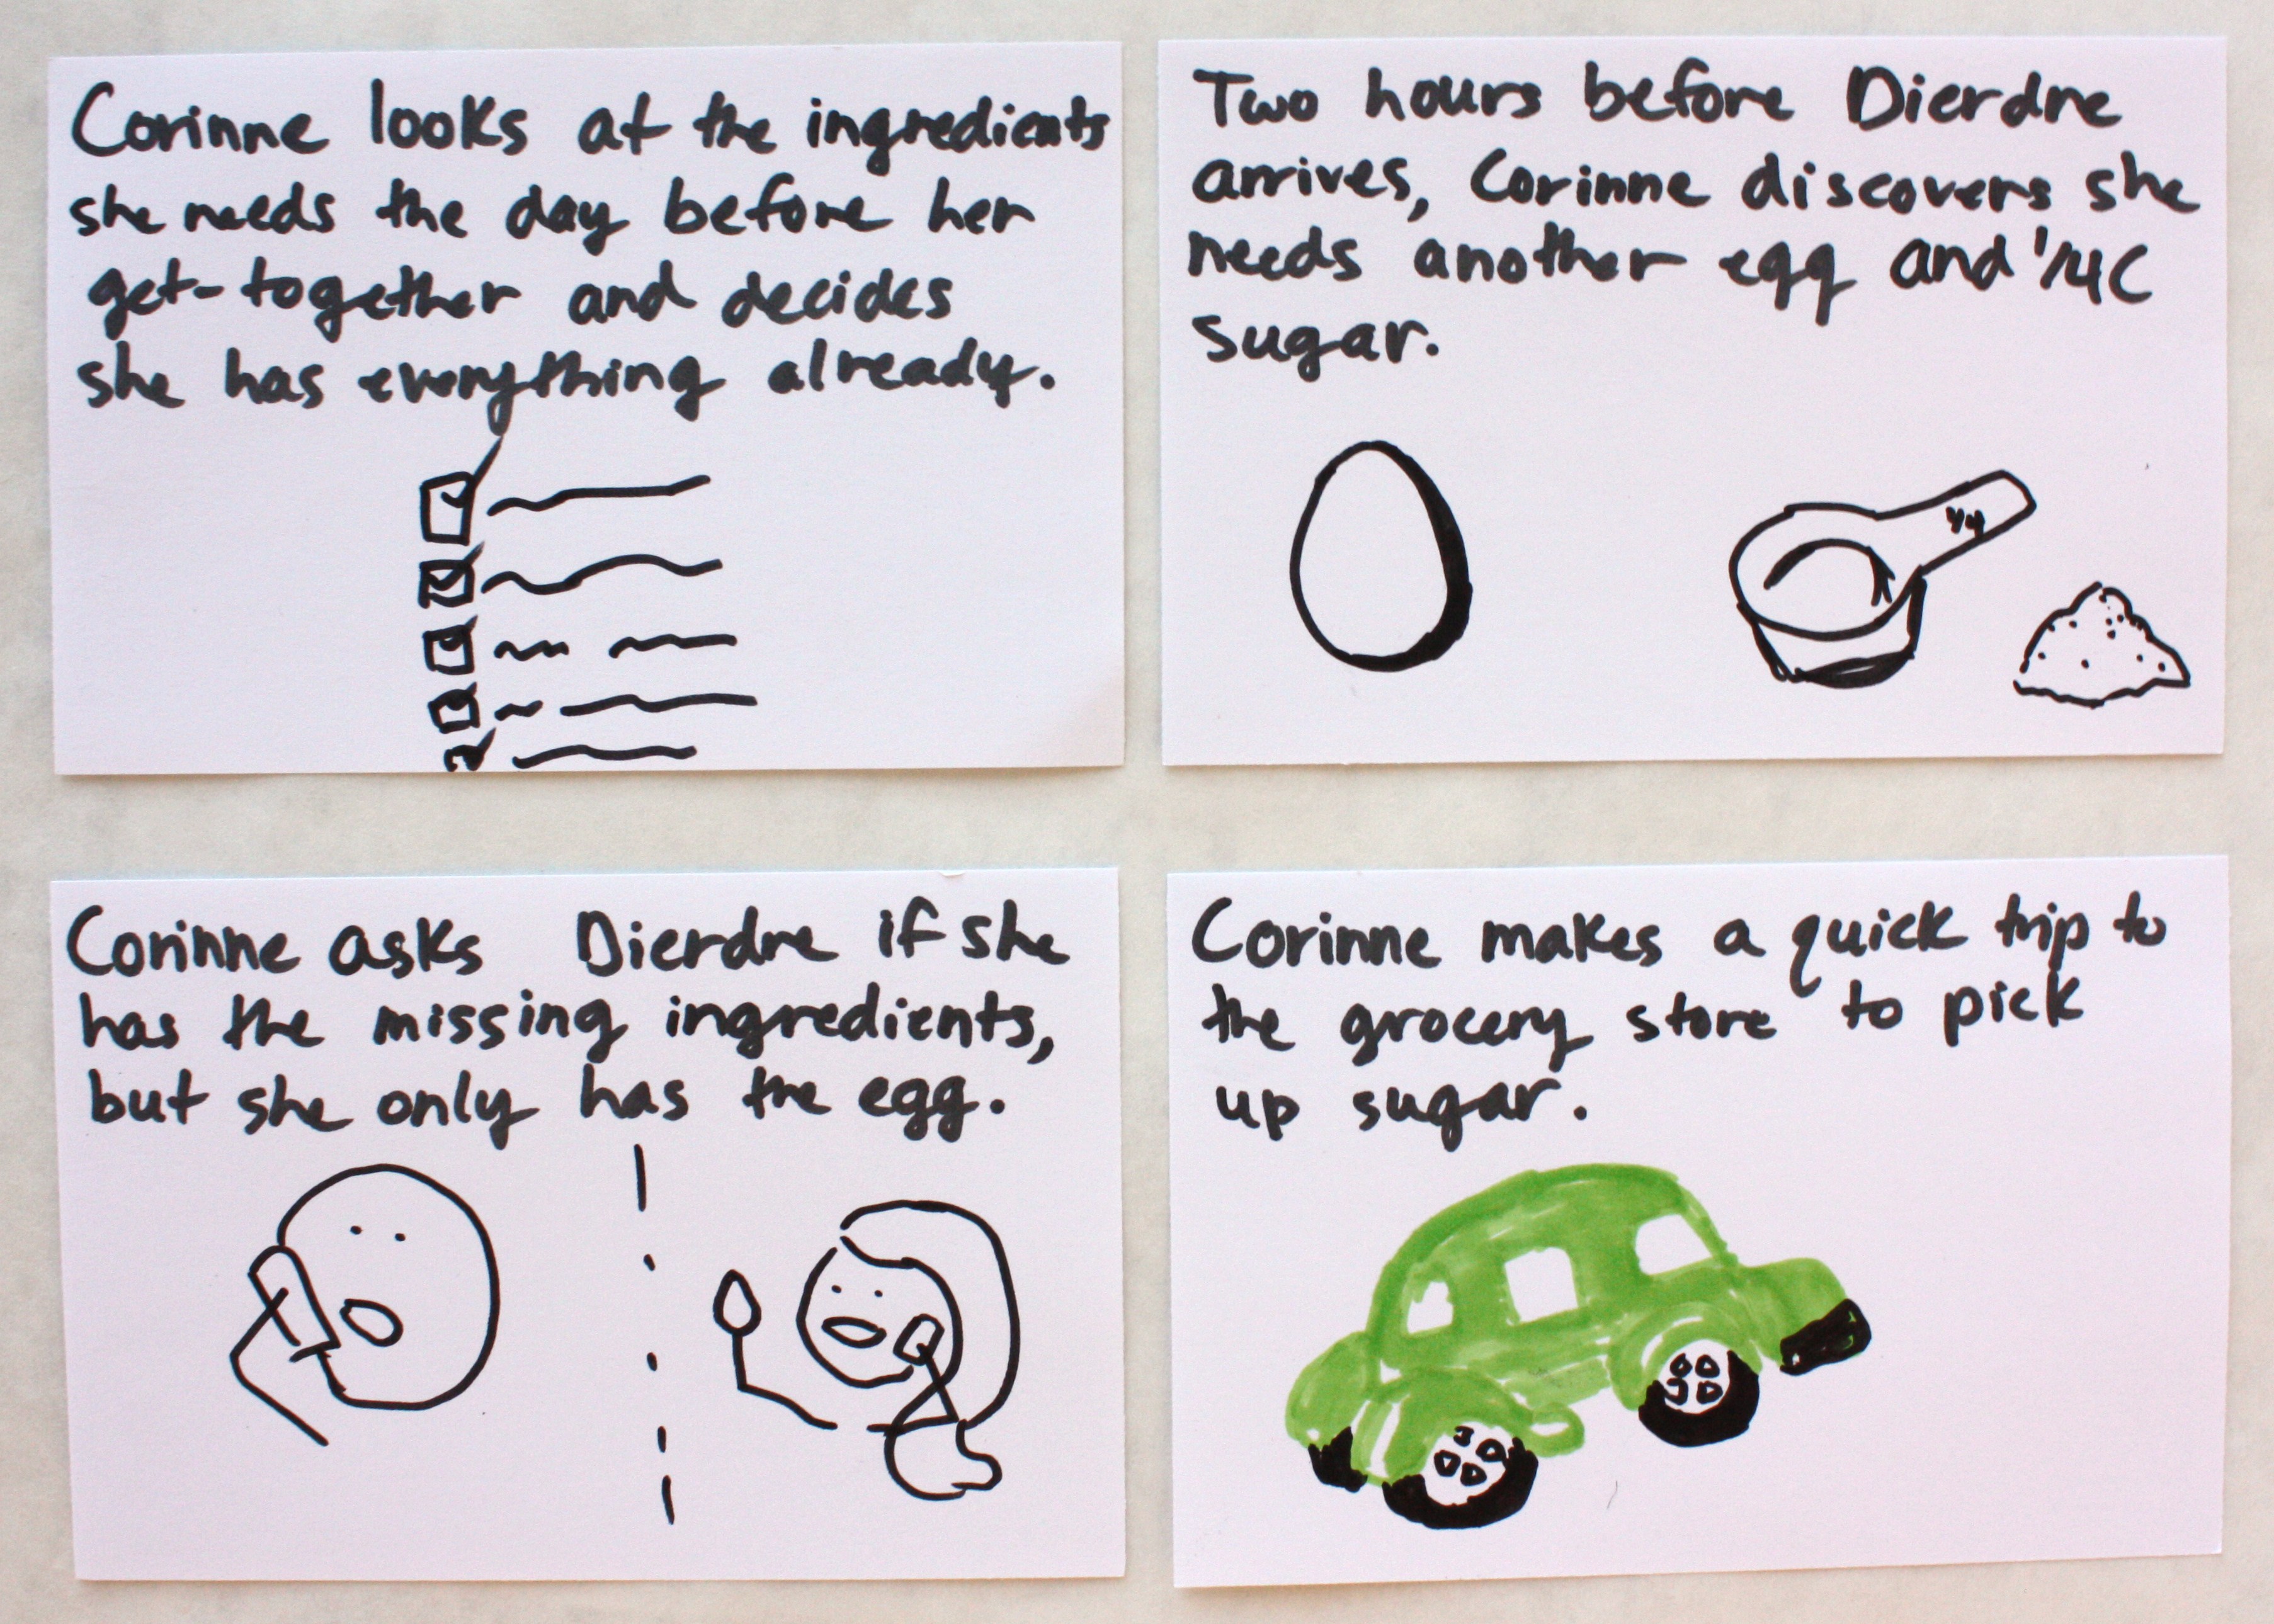 Corinne looks at the ingredients
she needs the day before her
get-together and decides
she has everything already.
Two hours before Dierdre
arrives, Corinne discovers she
needs another egg and 1/4C
sugar.
1/4
Corinne asks Dierdre if she
has the missing ingredients,
but she only has the egg.
Corinne makes a quick trip to
the grocery store to pick
up sugar.